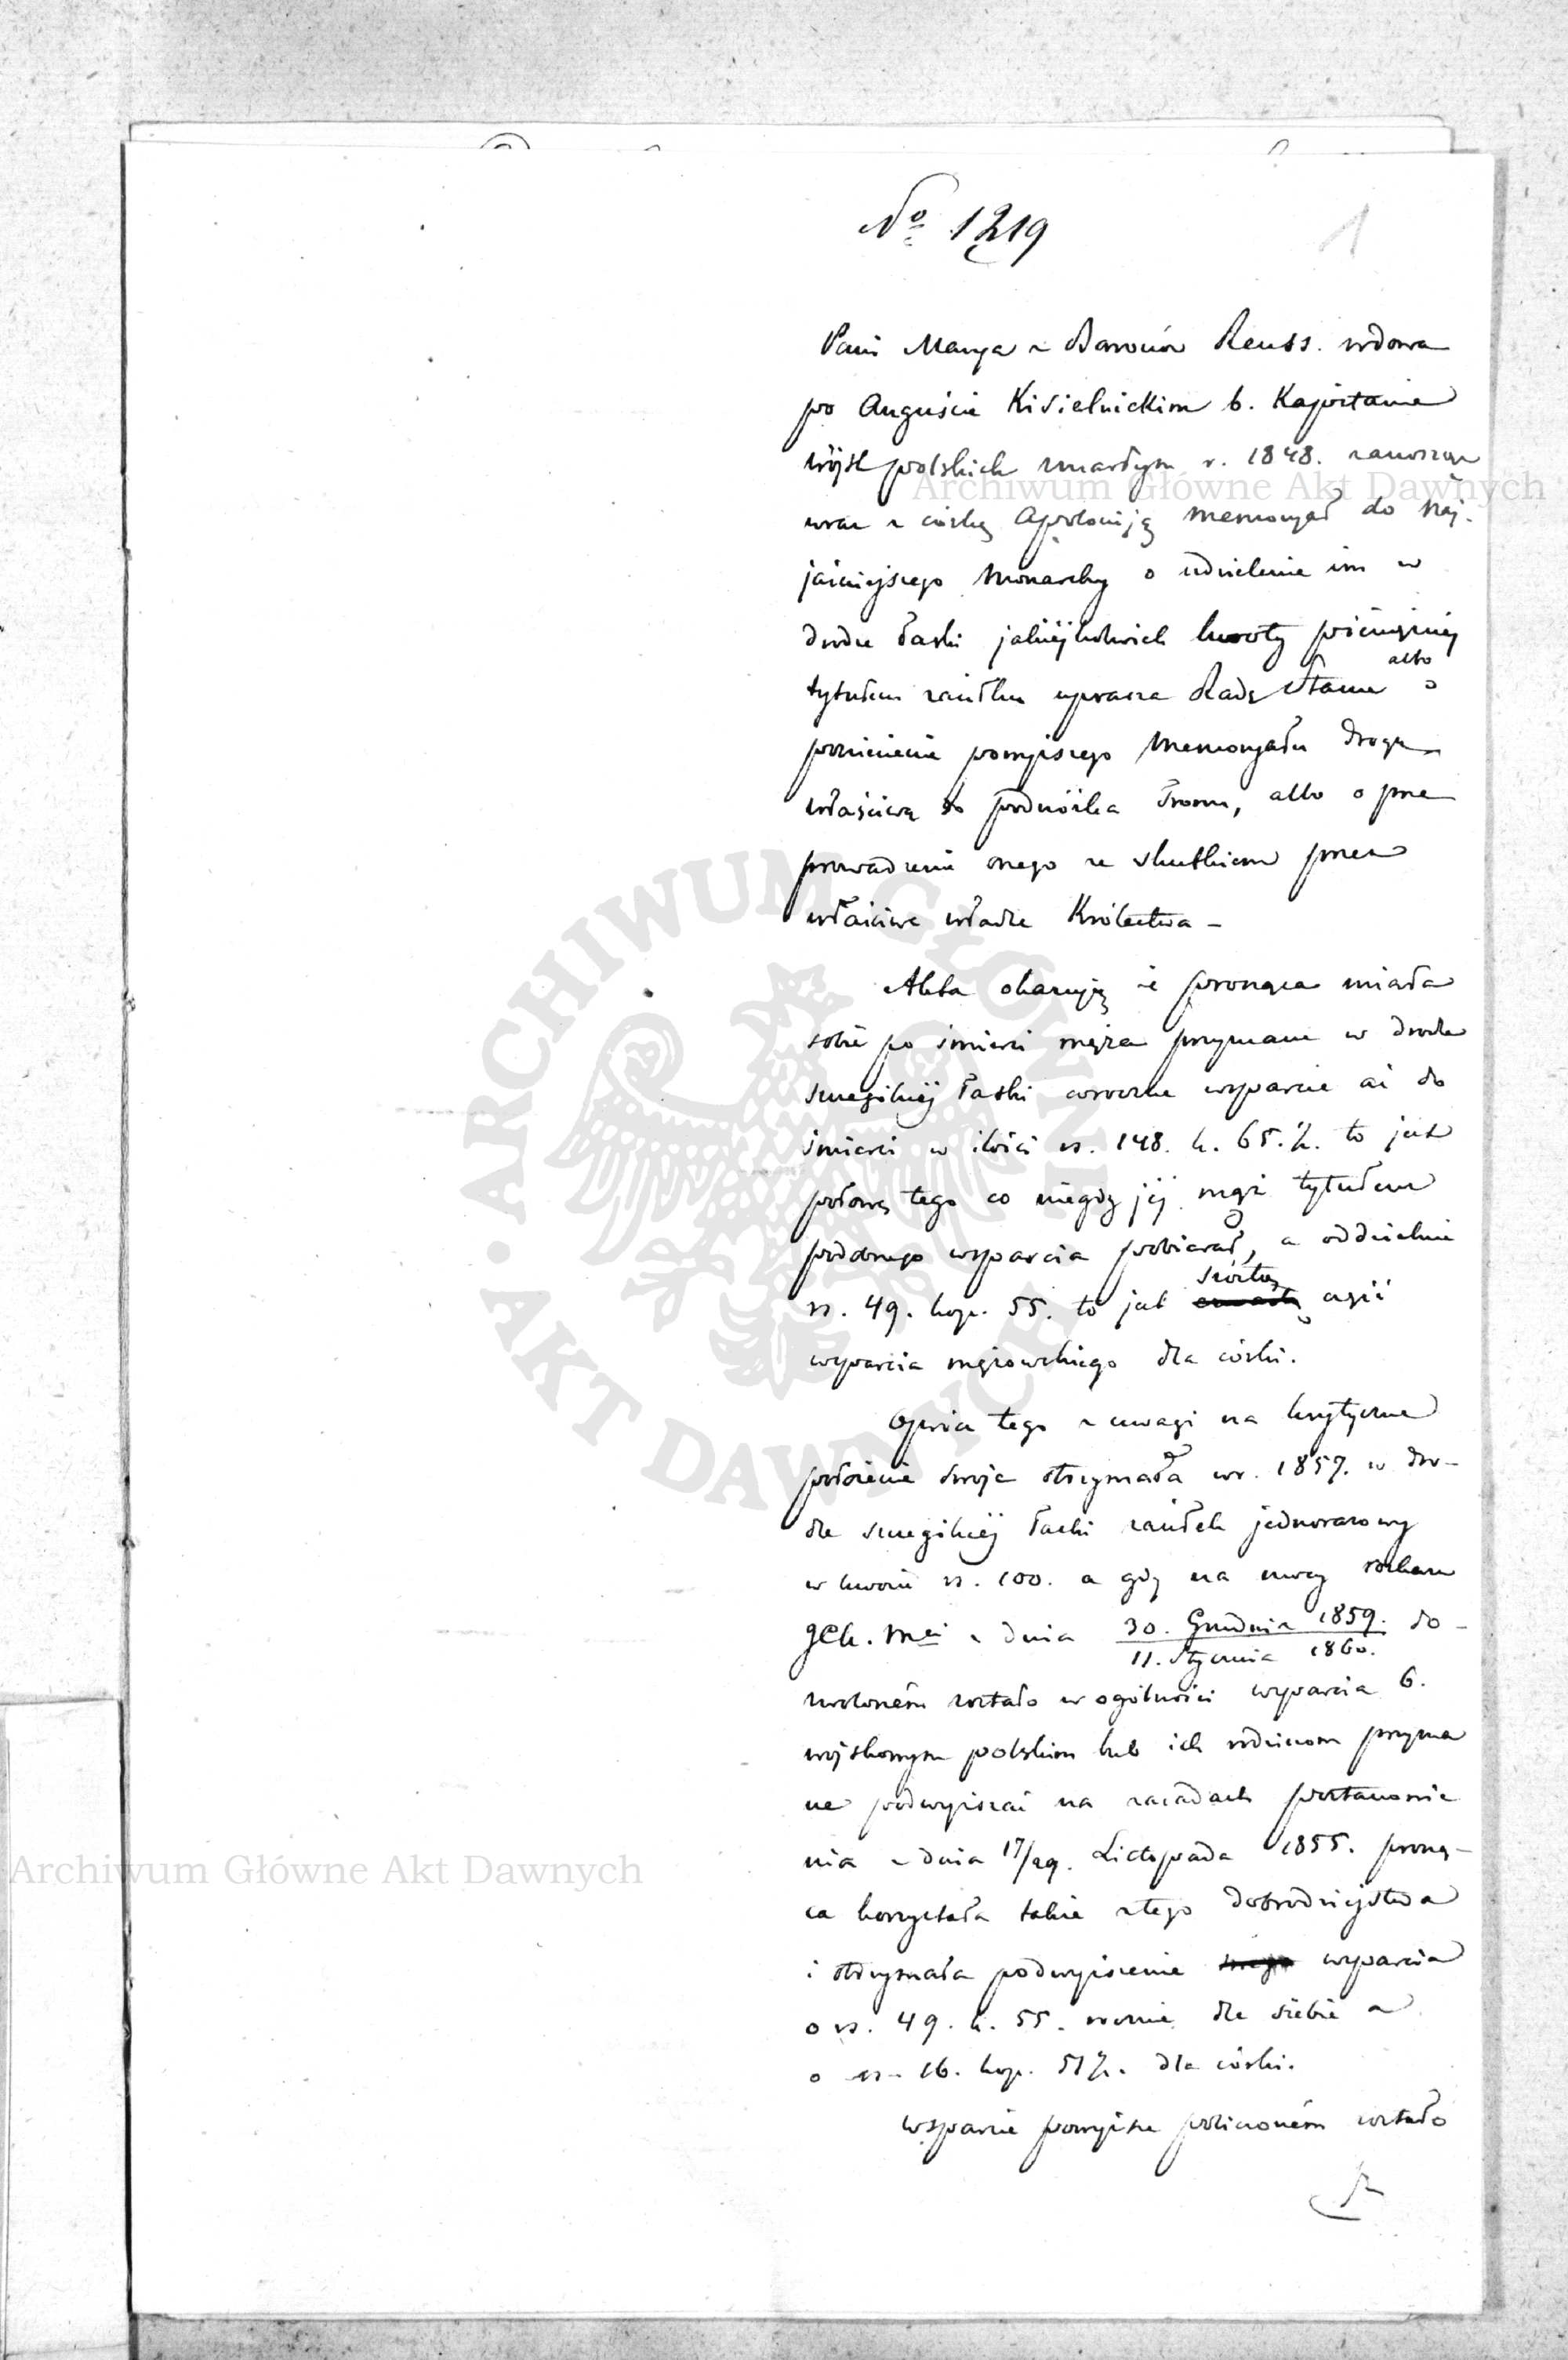 № 1219
1
Pani Marya z Baronów Reuss. wdowa
po Auguście Kisielnickim b. Kapitanie
wójsk polskich zmarłym r. 1848. zanosząc
wraz z córką Apoloniją memoryał do Naj-
jaśniejszego Monarchy o udzielenie im w
drodze łaski jakiéjkolwiek kwoty pieniężnéj
tytułem zasiłku uprasza Radę Stanu albo o
poniesienie powyższego Memoryału drogą
właściwą do podnóżka Tronu, albo o prze
prowadzenie onego ze skutkiem przez
właściwe władze Królestwa –
Akta okazują że prosząca miała
sobie po śmierci męża przyznane w drodze
szczególnéj łaski coroczne wsparcie aż do
śmierci w ilości rs. 148. k. 65.½. to jest
połowę tego co niegdy jéj mąż tytułem
podobnego wsparcia pobierał, a oddzielnie
rs. 49. kop. 55. to jest szóstą część
wsparcia mężowskiego dla córki.
Oprócz tego z uwagi na krytyczne
położenie swoje otrzymała w r. 1857. w dro-
dze szczególnéj łaski zasiłek jednorazowy
w kwocie rs. 100. a gdy na mocy rozkazu
JCK. Mci z dnia 30. Grudnia 1859. do-
11. Stycznia 1860.
zwoloném zostało w ogólności wsparcia b.
wojskowym polskim lub ich rodzinom przyzna
ne podwyższać na zasadach postanowie
nia z dnia 17/29. Listopada 1855. proszą-
ca korzystała także z tego dobrodziejstwa
i otrzymała podwyższenie wsparcia
o rs. 49. k. 55. rocznie dla siebie a
o rs. 16. kop. 51½. dla córki.
Wsparcie powyższe policzoném zostało
Archiwum Główne Akt Dawnych
ARCHIWUM GŁÓWNE · AKT DAWNYCH
Archiwum Główne Akt Dawnych